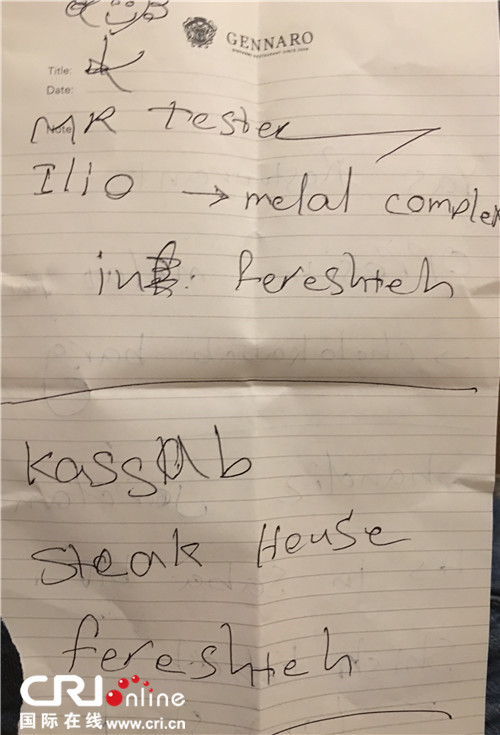 GENNARO
Title:
Date:
Note
MR tester
Ilio → melal complex
in fereshteh
kassab
steak House
fereshteh
CRI online
国际在线 www.cri.cn